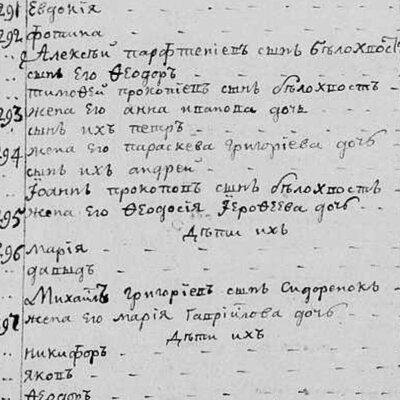 291 Евдокія
292 фотина
Алексѣй парфтеніевъ сынъ бѣлохвостъ
сынъ Его Ѳеодоръ
тимоѳей прокопіевъ сынъ бѣлохвостъ
293 жена Его анна иванова дочь
сынъ ихъ петръ
294 жена Его параскева григоріева дочь
сынъ ихъ андрей
Іоаннъ прокоповъ сынъ бѣлохвостъ
295 жена Его Ѳеодосія Іероѳеева дочь
Дѣти ихъ
296 марія
давыдъ
Михаилъ григоріевъ сынъ Сидоренокъ
297 жена Его марія Гавріилова дочь
Дѣти ихъ
никифоръ
яковъ
Ѳеодоръ